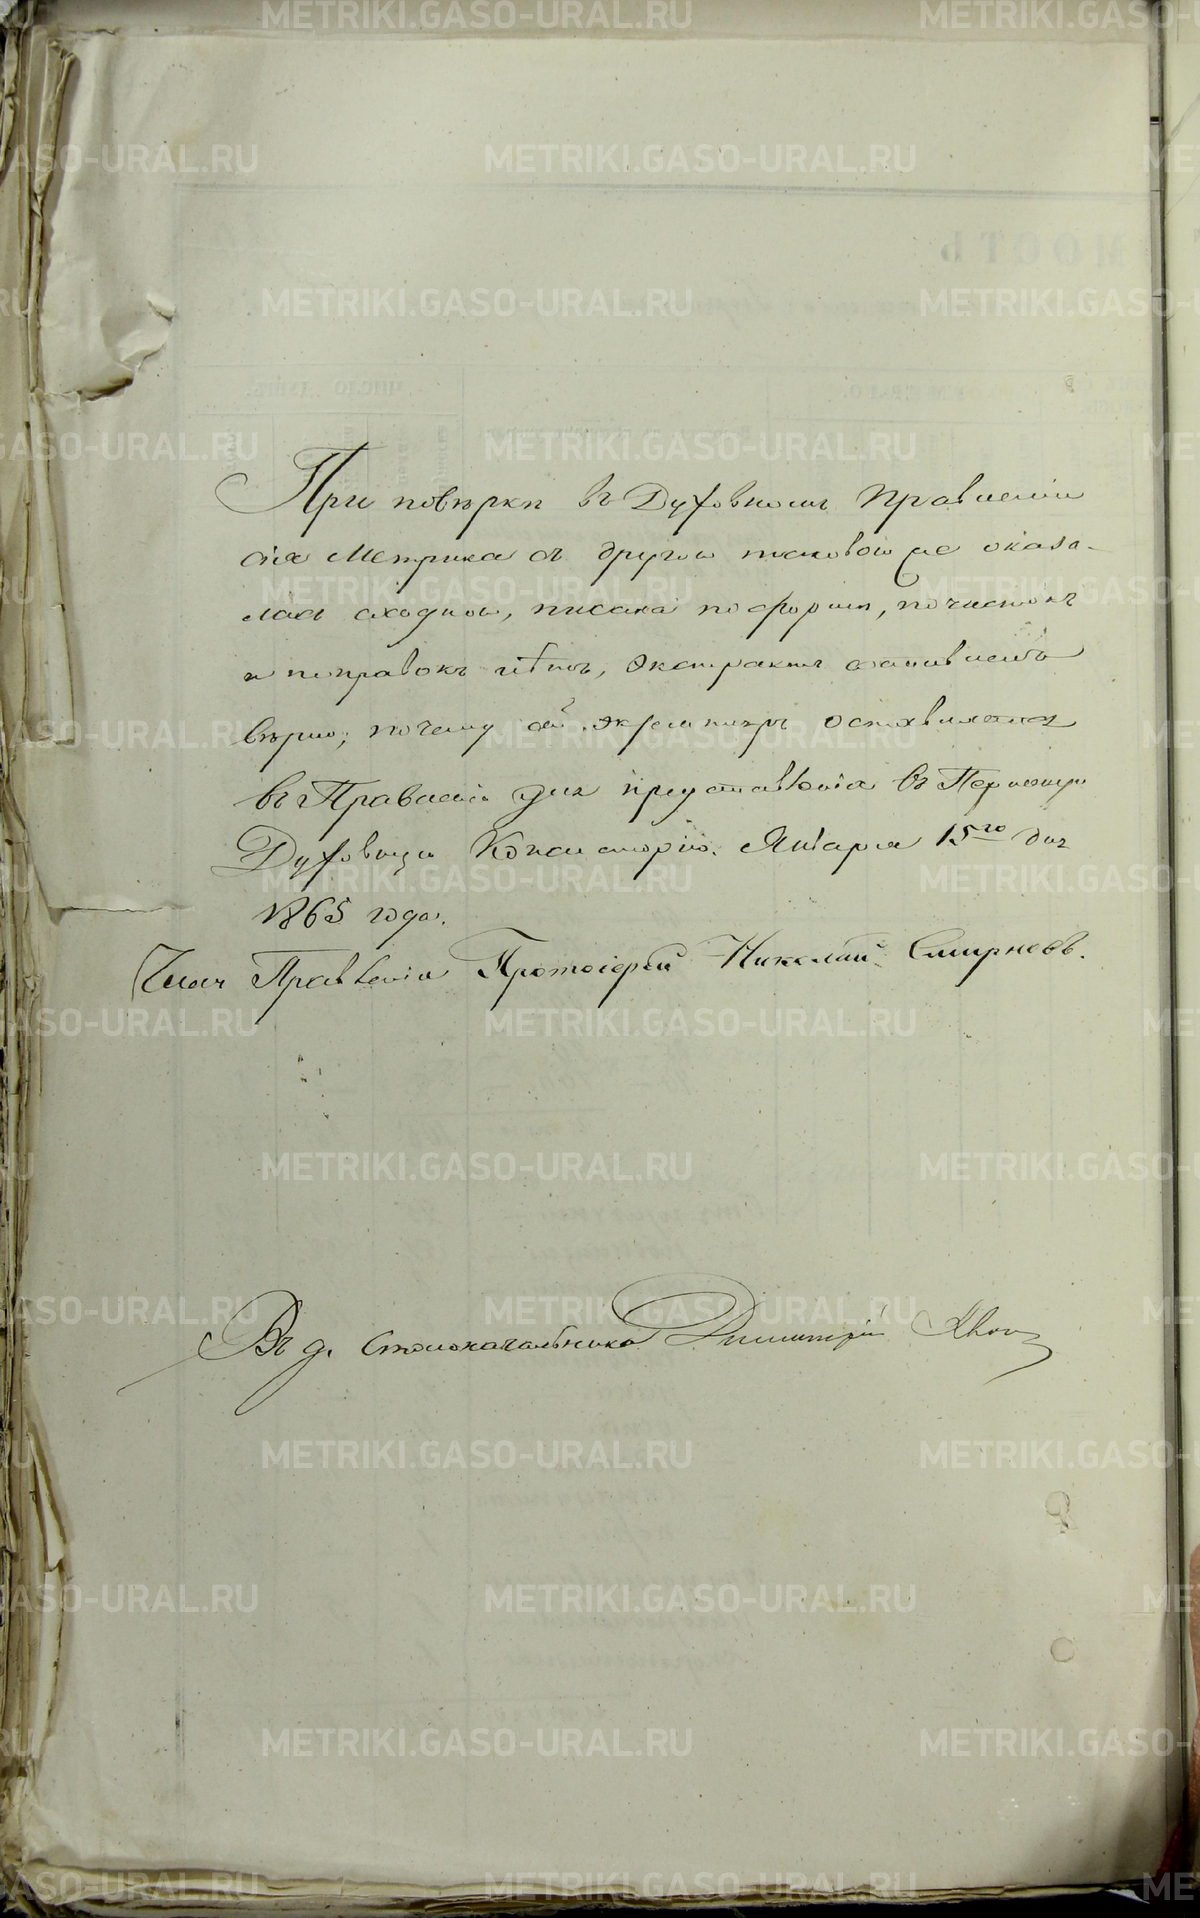 При повѣркѣ въ Духовномъ Правленіи
сія Метрика съ другою таковою же оказа-
лась сходною, писана по формѣ, почистокъ
и поправокъ нѣтъ, экстрактъ составленъ
вѣрно; почему сей экземпляръ оставляется
въ Правленіи для представленія въ Пермскую
Духовную Консисторію. Января 15го дня
1865 года.
Членъ Правленія Протоіерей Николай Смирновъ.
Въ д. Столоначальника Димитрій
МОСТЬ
ЧИСЛО
METRIKI.GASO-URAL.RU